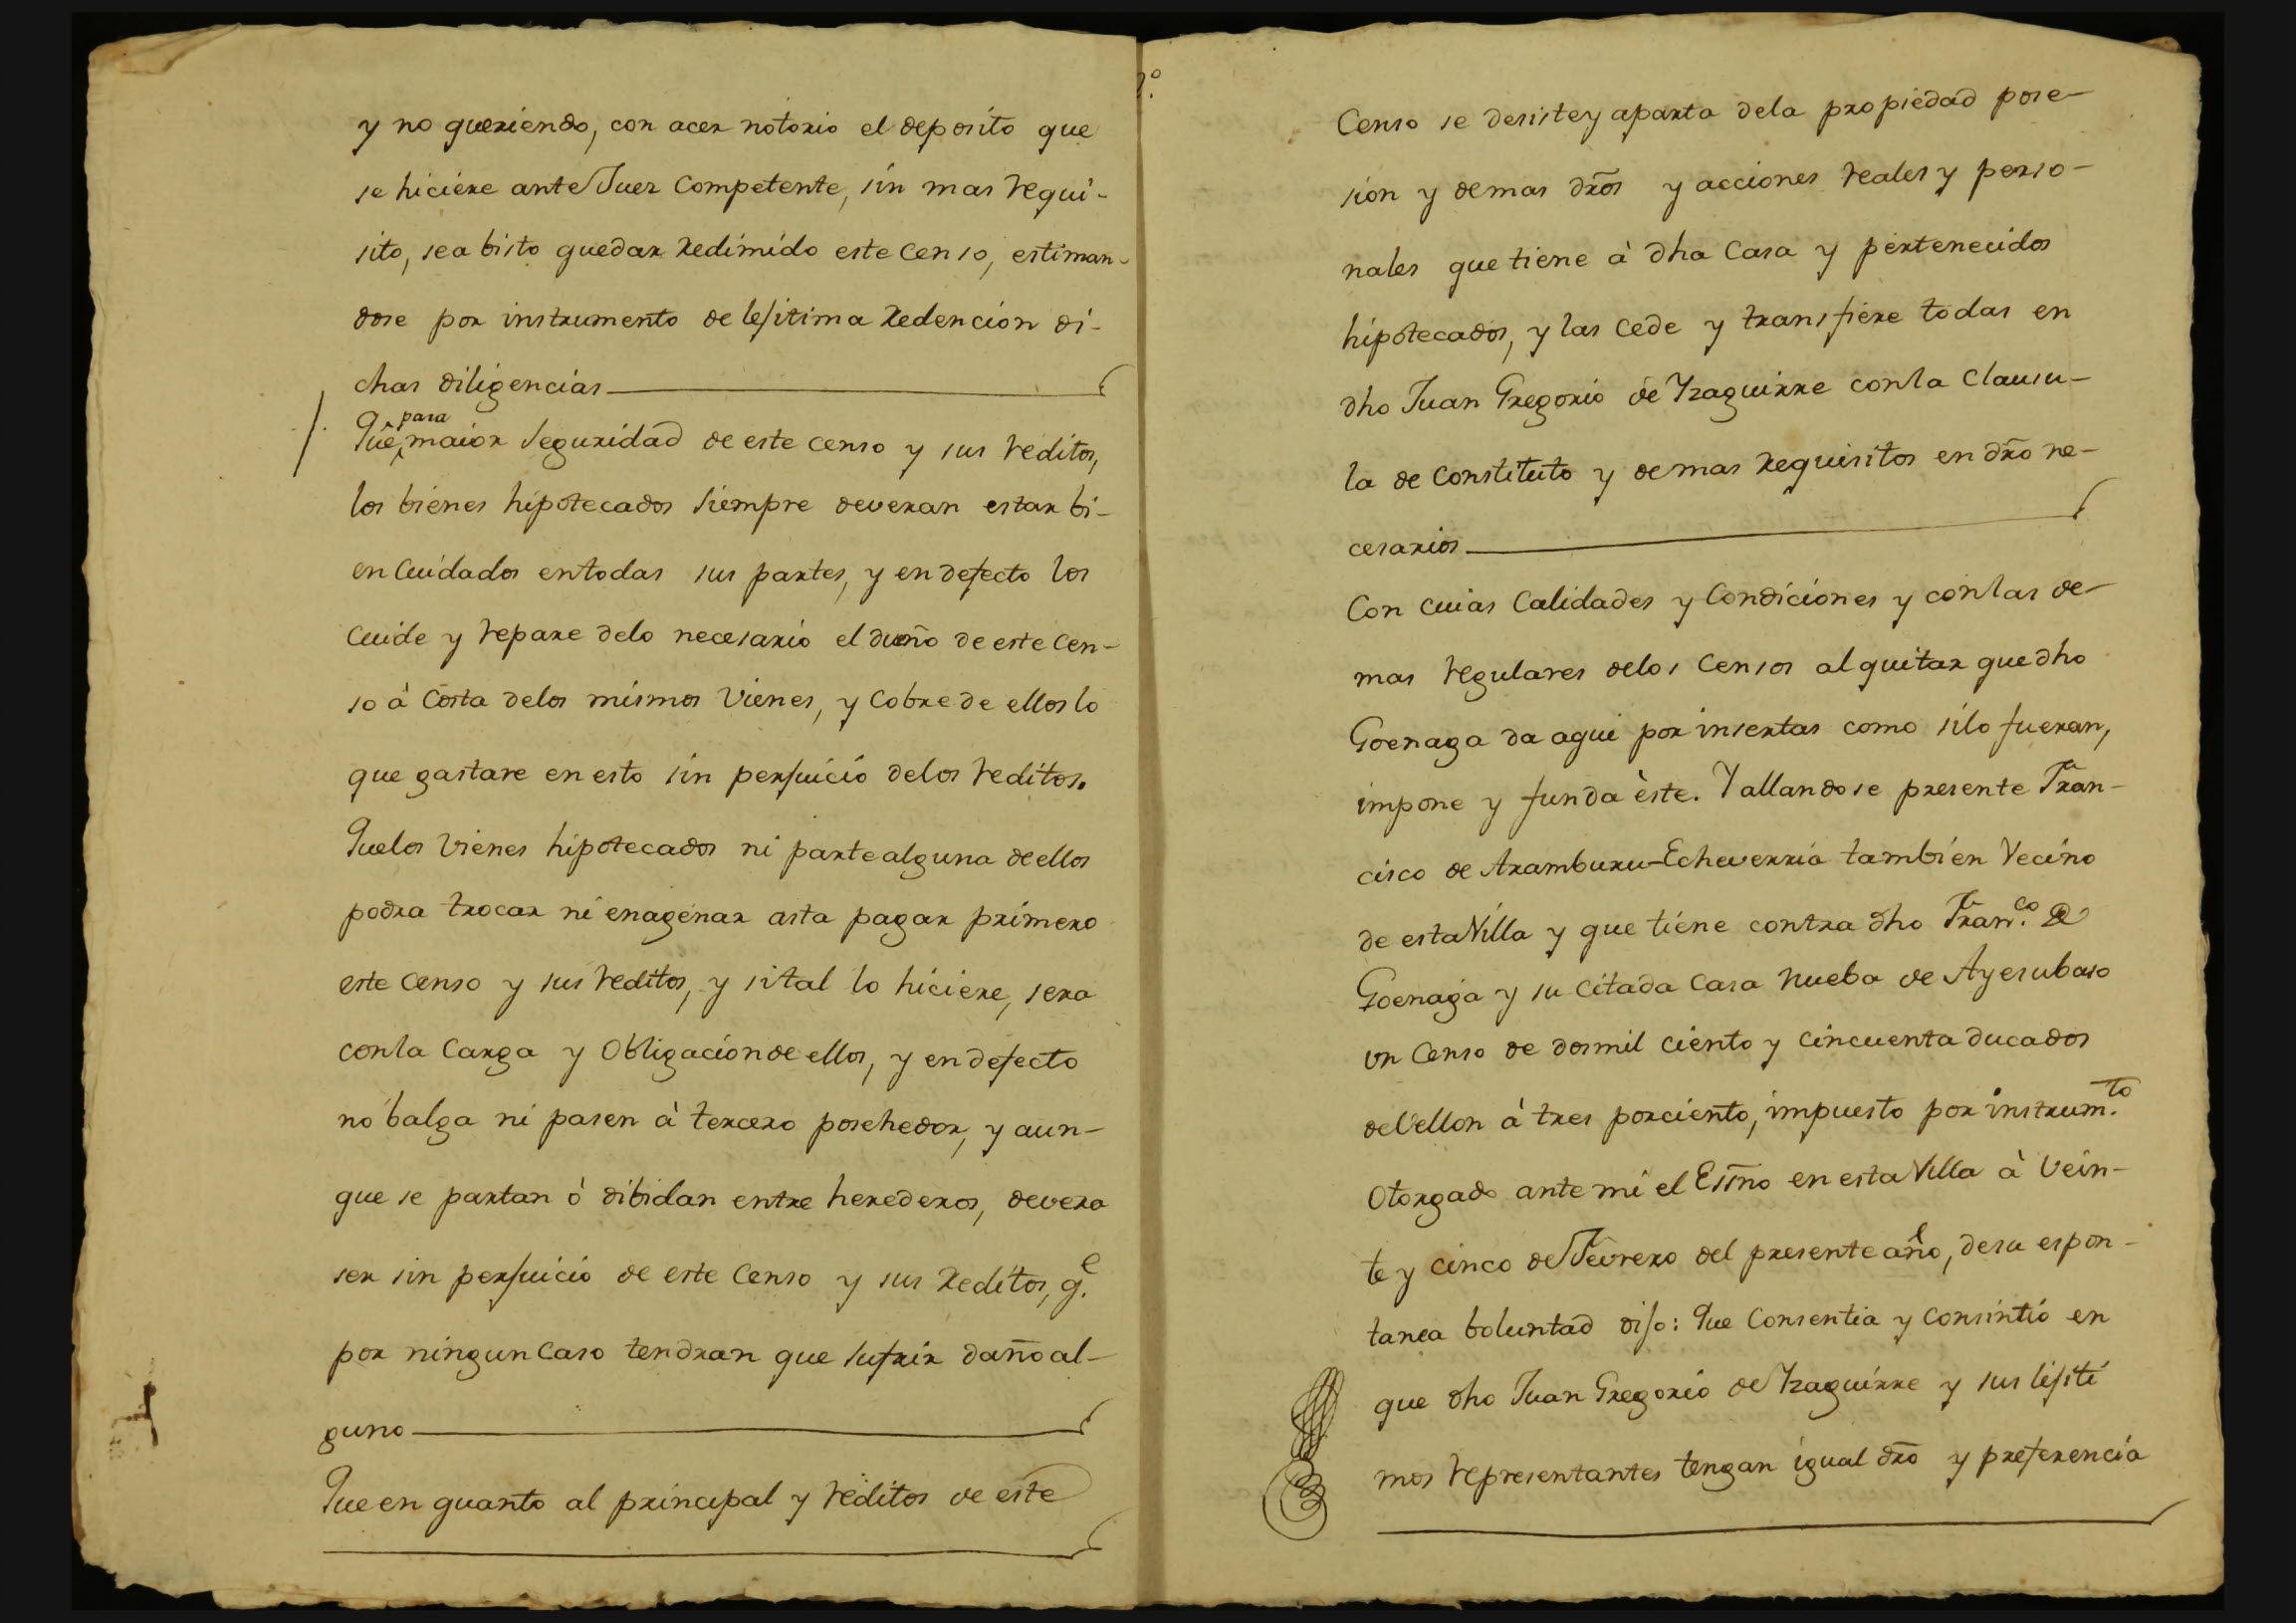 y no queriendo, con acer notorio el deposito que
se hiciere ante Juez Competente, sin mas requi-
sito, sea bisto quedar redimido este Censo, estiman-
dose por instrumento de lejitima Redencion di-
chas diligencias
Que para maior seguridad de este censo y sus reditos,
los bienes hipotecados siempre deveran estar bi-
en Cuidados entodas sus partes, y en defecto los
Cuide y repare delo necesario el dueño de este Cen-
so à Costa delos mismos Vienes, y Cobre de ellos lo
que gastare en esto sin perjuicio delos reditos.
Quelos Vienes hipotecados ni parte alguna de ellos
podra trocar ni enagenar asta pagar primero
este censo y sus reditos, y sital lo hiciere, sera
conla Carga y Obligacion de ellos, y en defecto
no balga ni pasen à tercero posehedor, y aun-
que se partan ò dibidan entre herederos, devera
ser sin perjuicio de este Censo y sus Reditos, q.e
por ningun Caso tendran que sufrir daño al-
guno
Que en quanto al principal y reditos de este
Censo se desiste y aparta dela propiedad pose-
sion y demas dr̃os y acciones reales y perso-
nales que tiene à dha Casa y pertenecidos
hipotecados, y las Cede y transfiere todas en
dho Juan Gregorio de Yzaguirre conla Clausu-
la de Constituto y demas requisitos en dr̃o ne-
cesarios
Con cuias Calidades y Condiciones y conlas de-
mas regulares delos Censos al quitar que dho
Goenaga da aqui por insertas como silo fueran,
impone y funda èste. Y allandose presente Fran-
cisco de Aramburu-Echeverria tambien Vecino
de esta Villa y que tiene contra dho Fran.co de
Goenaga y su Citada Casa nueba de Ayesubaso
un Censo de dosmil ciento y cincuenta ducados
de Vellon à tres porciento, impuesto por instrum.to
Otorgado ante mi el Ess̃no en esta Villa à Vein-
te y cinco de Fevrero del presente año, desu espon-
tanea boluntad dijo: Que Consentia y Consintió en
que dho Juan Gregorio de Yzaguirre y sus lejiti
mos representantes tengan igual dr̃o y preferencia